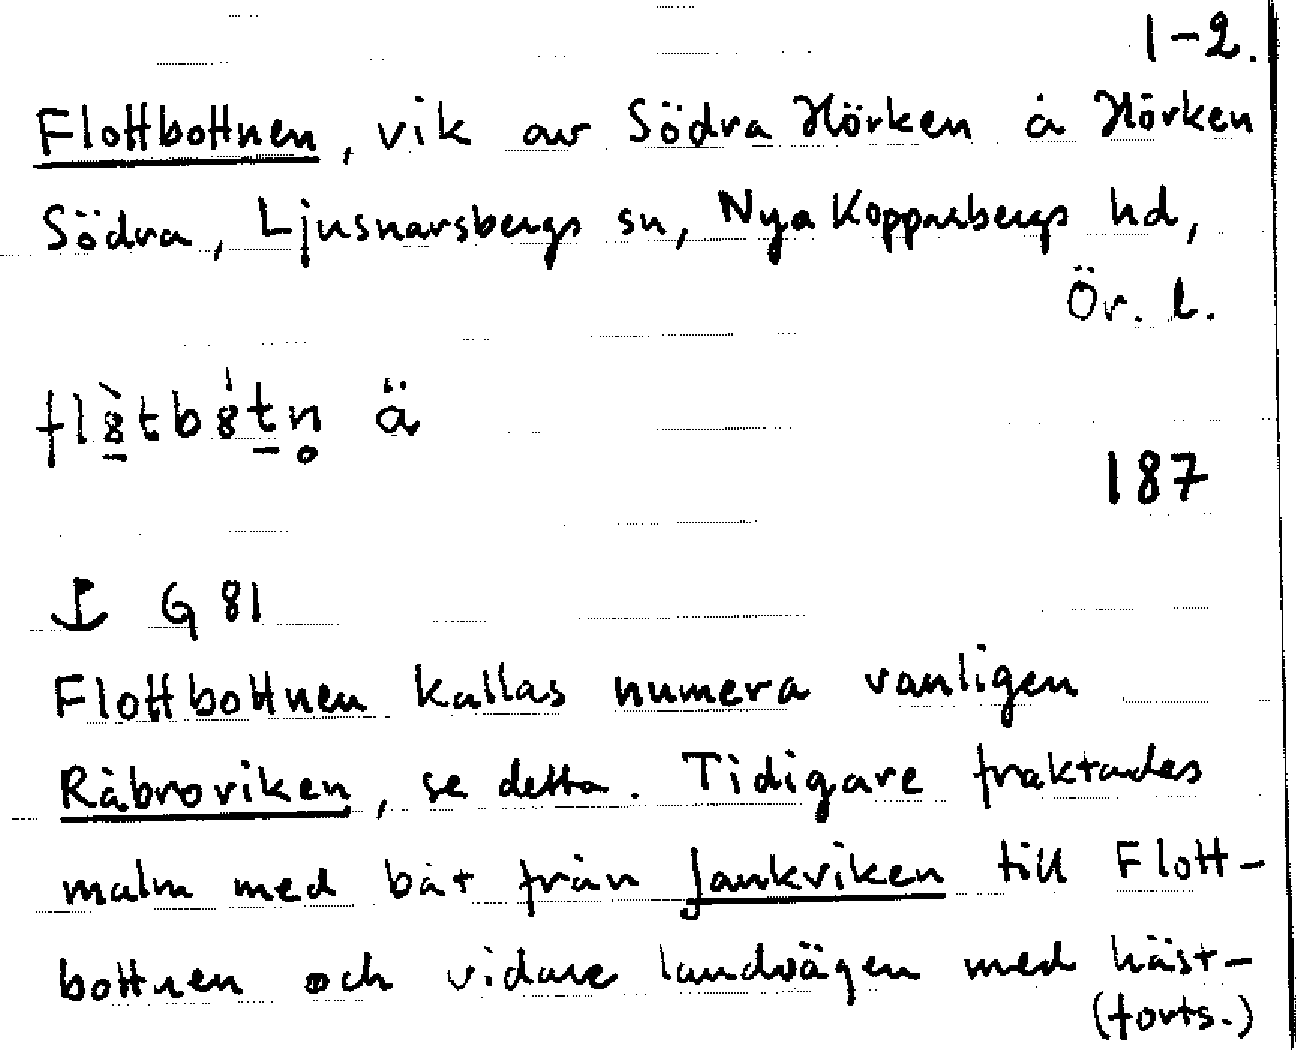 1-2.
Flottbottnen, vik av Södra Hörken å Hörken
Södra, Ljusnarsbergs sn, Nya Kopparbergs hd,
Ör. l.
ä
187
G 81
Flottbottnen kallas numera vanligen
Råbroviken, se detta. Tidigare fraktades
malm med båt från Jankviken till Flott-
bottnen och vidare landvägen med häst-
(forts.)